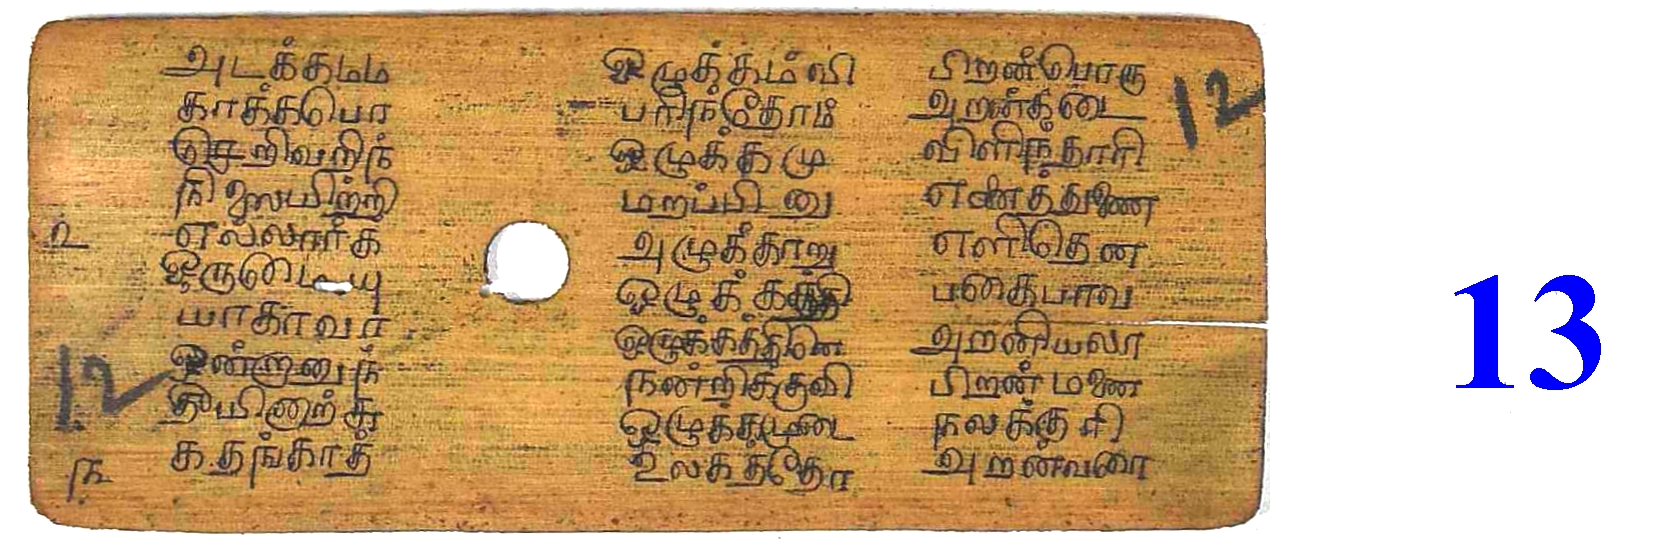 அடக்கமம
காக்கபொ
செறிவறிந்
நிலையிற்றி
௨ எல்லார்க்
ஒருமையு
யாகாவா
12 ஒன்றானுந்
தீயினாற்சு
௩ கதங்காத்
ஒழுக்கம்வி
பரிந்தோம்
ஒழுக்கமு
மறப்பினு
அழுக்காறு
ஒழுக்கத்தி
ஒழுக்கத்தினெ
நன்றிக்குவி
ஒழுக்கமுடை
உலகத்தோ
பிறன்பொரு
அறன்கடை
12
விளிந்தாரி
எனைத்துணை
எளிதென
பகைபாவ
அறனியலா
பிறன்மனை
நலக்குரி
அறன்வரை
13